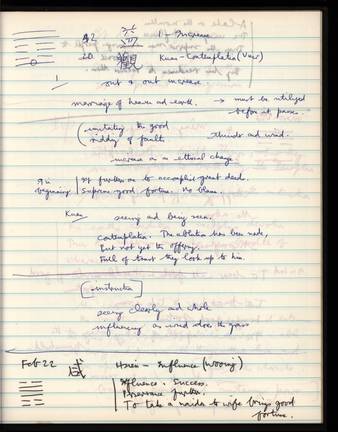 42 益 I - Increase
20 觀 Kuan - Contemplation (View)
out & out increase.
marriage of heaven and earth. → must be utilized
before it passes.
(imitating the good
ridding of faults thunder and wind.
increase as an ethical change.
9 in | It furthers one to accomplish great deeds.
beginning | Supreme good fortune. No blame.
Kuan seeing and being seen.
Contemplation. The ablution has been made,
But not yet the offering.
Full of trust they look up to him.
[instruction]
seeing clearly and whole
influencing as wind does the grass
Feb 22 咸 Hsien - Influence (Wooing)
Influence. Success.
Perseverance furthers.
To take a maiden to wife brings good
fortune.